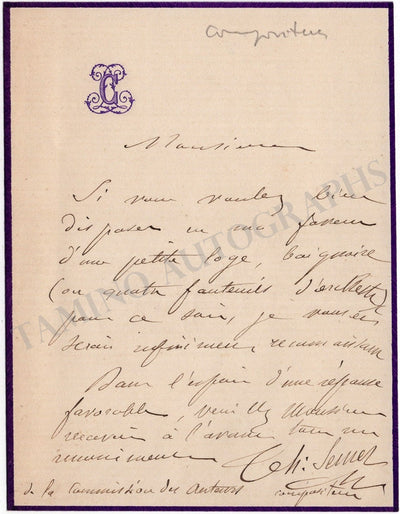 compositeur
Monsieur
Si vous voulez bien
disposer en ma faveur
d'une petite loge, baignoire
(ou quatre fauteuils d'orchestre)
pour ce soir, je vous en
serais infiniment reconnaissant
Dans l'espoir d'une réponse
favorable, veuillez Monsieur
recevoir à l'avance tous mes
remerciements
Th: Semet
de la Commission des Auteurs compositeur
TAMINO AUTOGRAPHS